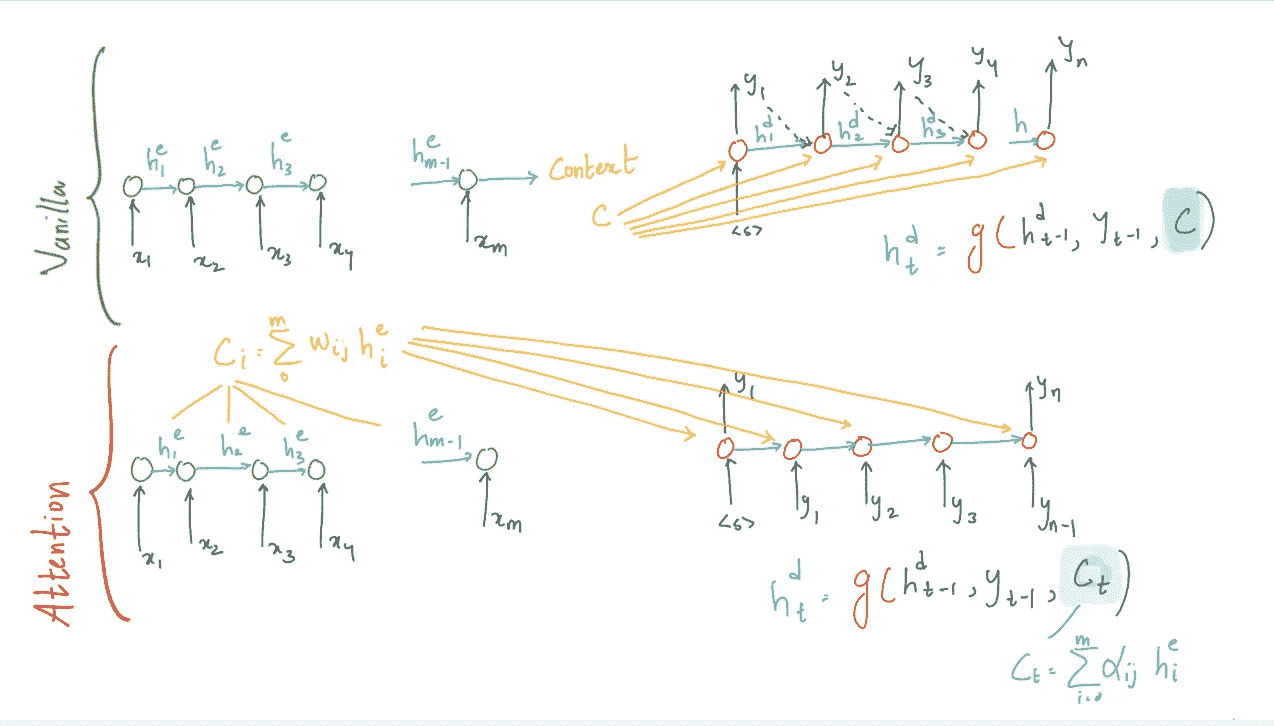 Vanilla
h₁ᵉ h₂ᵉ h₃ᵉ hₘ₋₁ᵉ
x₁ x₂ x₃ x₄ xₘ
Context
C
y₁ y₂ y₃ y₄ yₙ
h₁ᵈ h₂ᵈ h₃ᵈ h
<s>
hₜᵈ = g(hₜ₋₁ᵈ, yₜ₋₁, C)
Attention
Cᵢ = ∑₀ᵐ wᵢⱼ hᵢᵉ
h₁ᵉ h₂ᵉ h₃ᵉ hₘ₋₁ᵉ
x₁ x₂ x₃ x₄ xₘ
y₁ yₙ
<s> y₁ y₂ y₃ yₙ₋₁
hₜᵈ = g(hₜ₋₁ᵈ, yₜ₋₁, Cₜ)
Cₜ = ∑ᵢ₌₀ᵐ αᵢⱼ hᵢᵉ